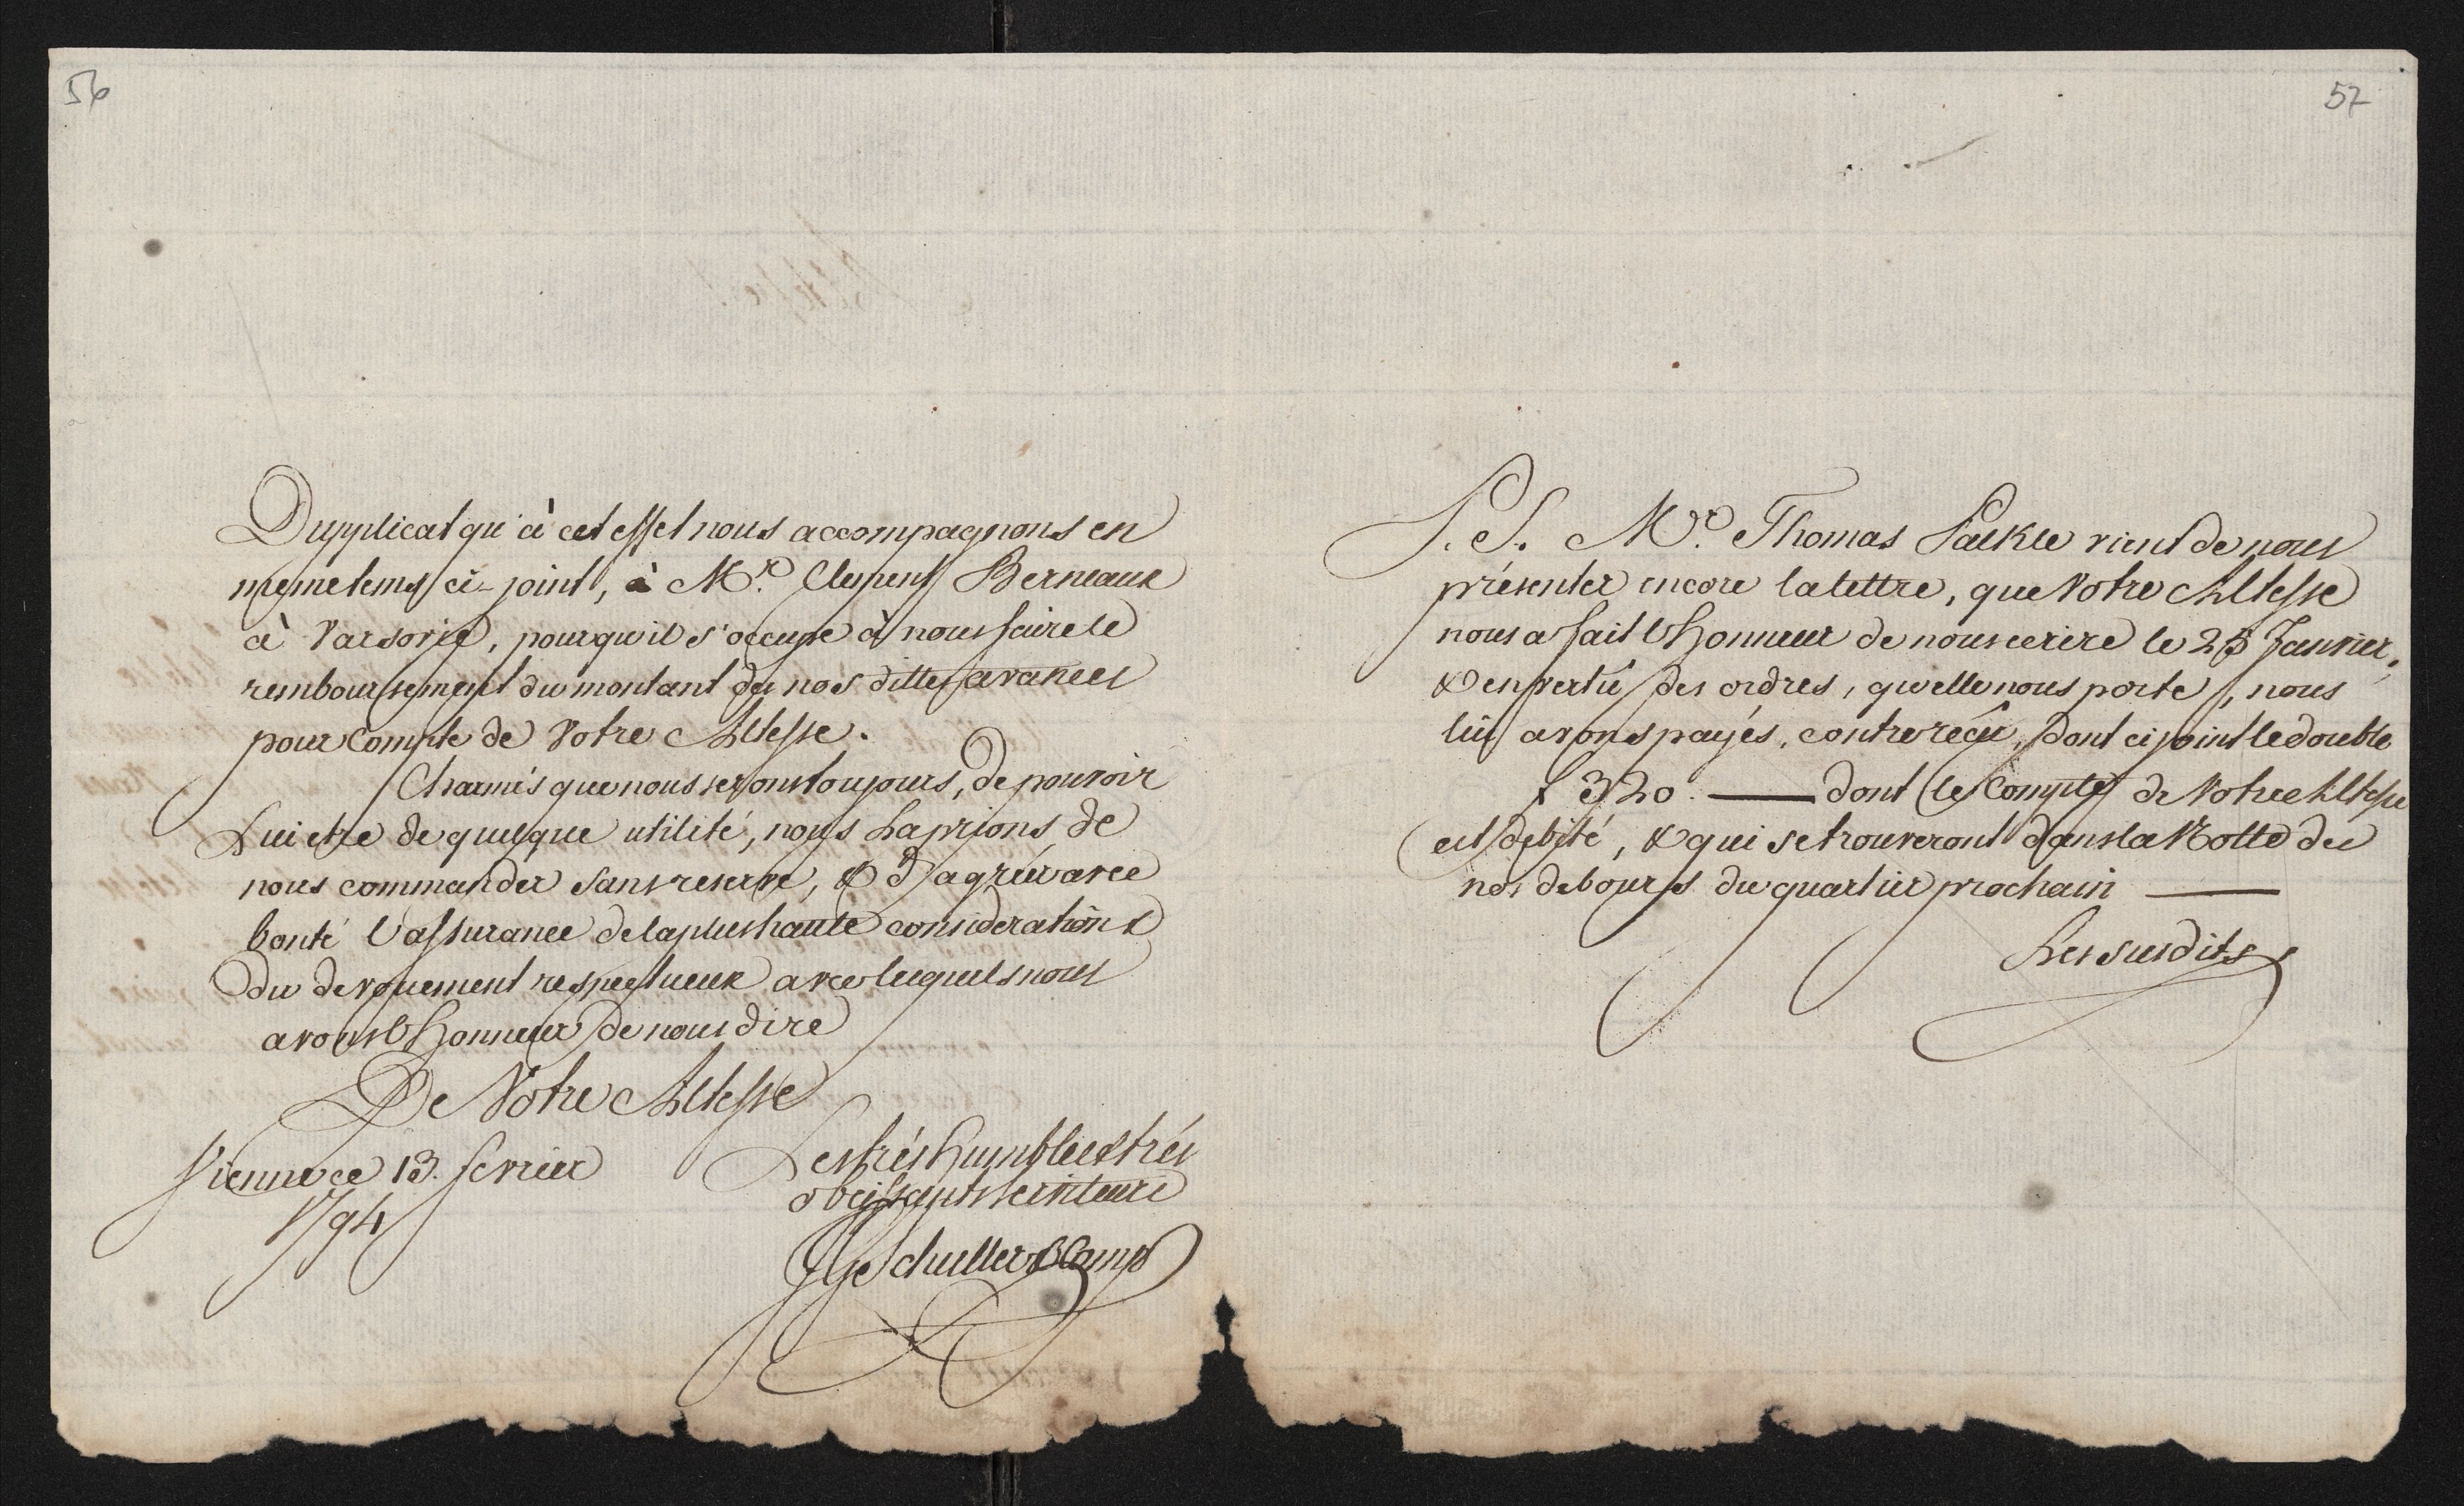 56
Dupplicat qu'à cet effet nous accompagnons en
meme tems ci-joint, à Mr. Clement Berneaux
à Varsovie, pour qu'il s'occupe à nous faire le
remboursement du montant de nos dittes avances
pour Compte de Votre Altesse.
Charmés que nous serons toujours, de pouvoir
Lui etre de quelque utilité, nous La prions de
nous commander sans reserve, & d'agréer avec
bonté l'assurance de la plus haute consideration &
du devouement respectueux avec lesquels nous
avons l'Honneur de nous dire
De Votre Altesse
Vienne ce 13. fevrier
1794
Les trés humbles & trés
obeissants serviteurs
Schuller & Comp
57
P.S. Mr. Thomas vient de nous
présenter encore la lettre, que Votre Altesse
nous a fait l'Honneur de nous ecrire le 25 Janvier,
& en vertû des ordres, qu'elle nous porte, nous
lui avons payés, contre reçû, dont ci joint le double
f 320. — dont le Compte de Votre Altesse
est debité, & qui se trouveront dans la Notte de
nos debours du quartier prochain —
Les susdits